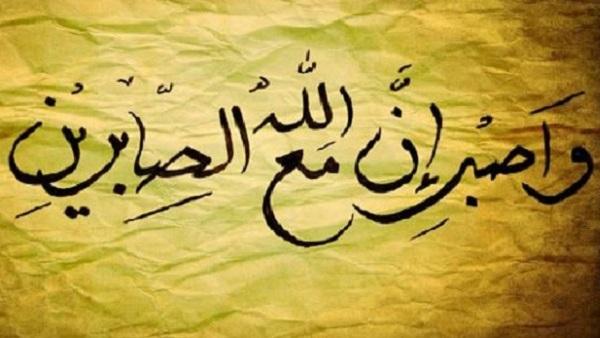 وَاصْبِر إِنَّ اللّٰهَ مَعَ الصَّابِرِيْنَ